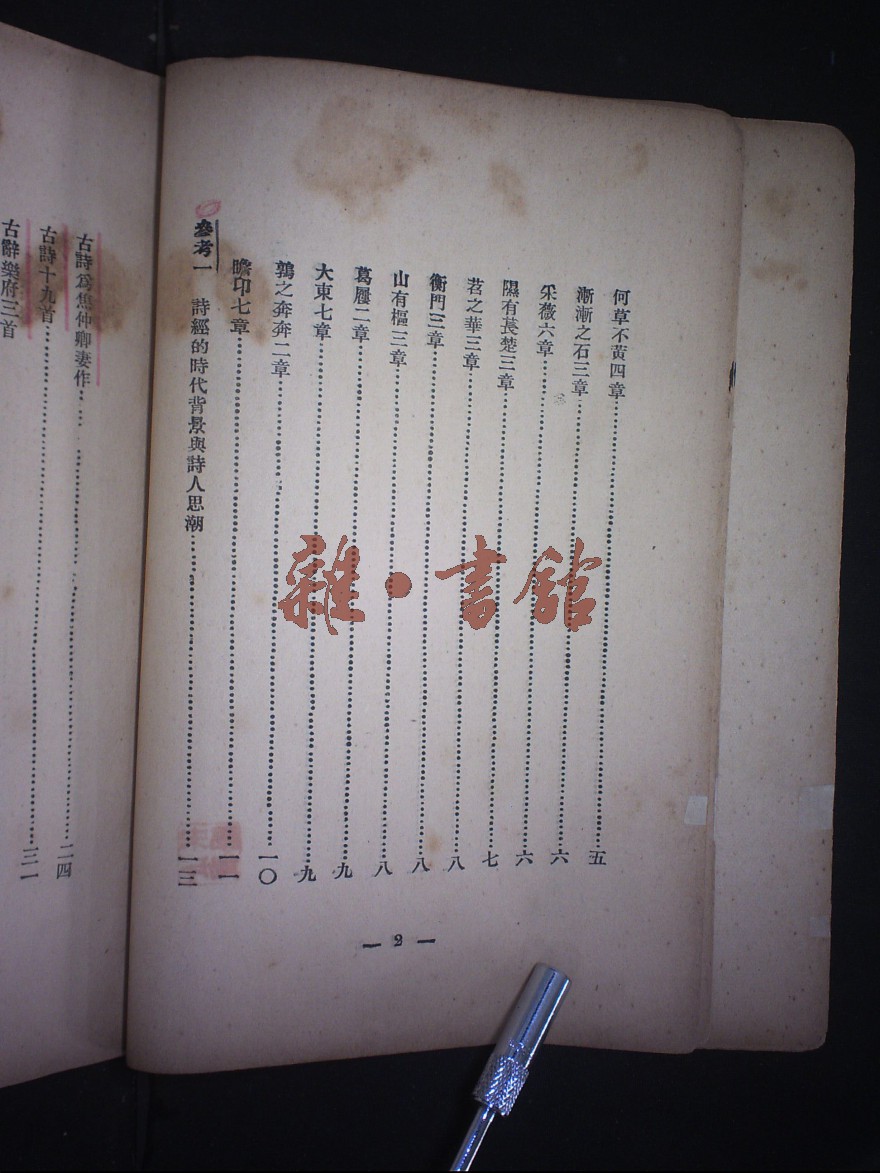 何草不黃四章……五
漸漸之石三章……六
采薇六章……六
隰有萇楚三章……七
苕之華三章……八
衡門三章……八
山有樞三章……八
葛屨二章……九
大東七章……九
鶉之奔奔二章……一〇
瞻卬七章……一一
參考一 詩經的時代背景與詩人思潮……一三
— 2 —
古詩爲焦仲卿妻作……二四
古詩十九首……三一
古辭樂府三首
雜·書館